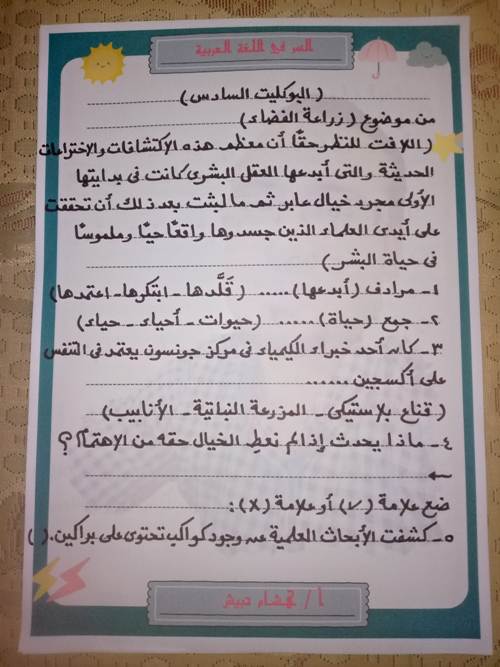 السر في اللغة العربية
( البوكليت السادس )
من موضوع ( زراعة الفضاء )
( اللافت للنظر حقًا أن معظم هذه الإكتشافات والإختراعات
الحديثة والتى أبدعها العقل البشرى كانت فى بدايتها
الأولى مجرد خيال عابر ثم ما لبثت بعد ذلك أن تحققت
على أيدى العلماء الذين جسدوها واقعًا حيًا وملموسًا
فى حياة البشر )
١- مرادف ( أبدعها ) ...... ( قَلَّدها - ابتكرها - اعتمدها )
٢- جمع ( حياة ) ...... ( حيوات - أحياء - حياء )
٣- كان أحد خبراء الكيمياء فى مركز جونسون يعتمد فى التنفس
على أكسجين ......
( قناع بلاستيكى - المزرعة النباتية - الأنابيب )
٤- ماذا يحدث إذا لم نعطِ الخيال حقه من الإهتمام ؟
←
ضع علامة (√) أو علامة (X) :
٥- كشفت الأبحاث العلمية عن وجود كواكب تحتوى على براكين. ( )
أ / هشام دبيش